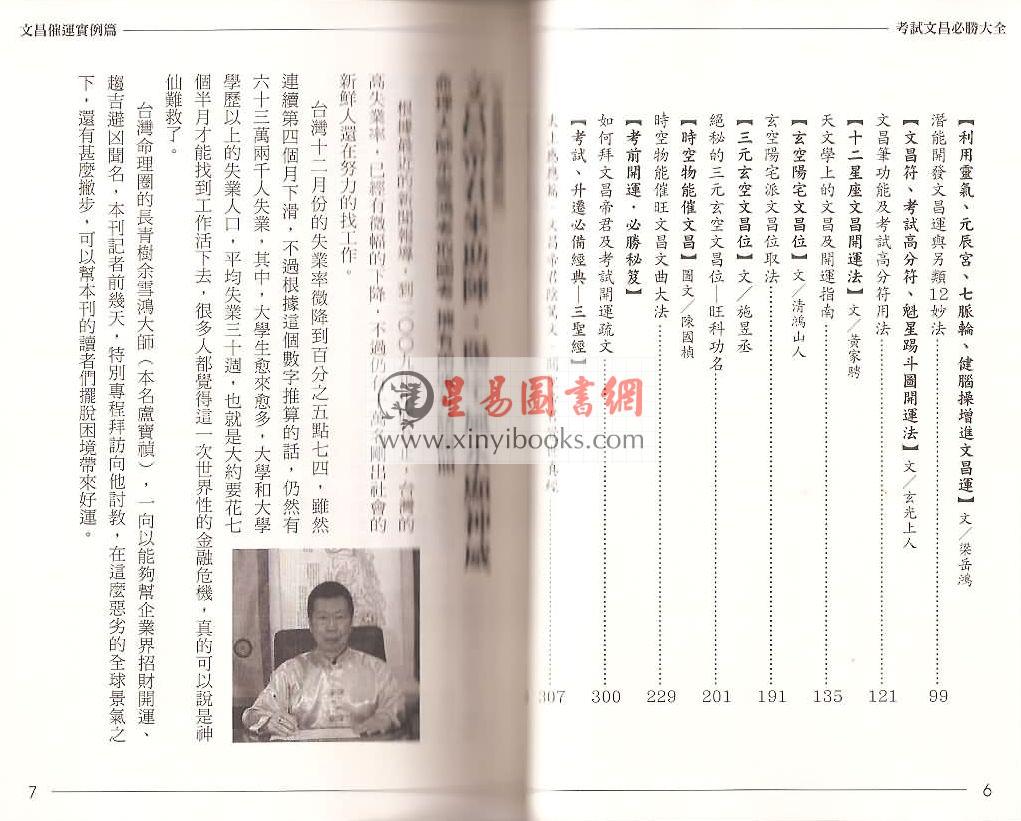 考試文昌必勝大全
【利用靈氣、元辰宮、七脈輪、健腦操增進文昌運】文／梁岳鴻
潛能開發文昌運與另類12妙法……99
【文昌符、考試高分符、魁星踢斗圖開運法】文／玄光上人
文昌筆功能及考試高分符用法……121
【十二星座文昌開運法】文／黃家騁
天文學上的文昌及開運指南……135
【玄空陽宅文昌位】文／清鴻山人
玄空陽宅派文昌位取法……191
【三元玄空文昌位】文／施昱丞
絕秘的三元玄空文昌位—旺科功名……201
【時空物能催文昌】圖文／陳國楨
時空物能催旺文昌文曲大法……229
【考前開運．必勝秘笈】
如何拜文昌帝君及考試開運疏文……300
【考試、升遷必備經典—三聖經】
307
6
文昌催運實例篇
根據最近的新聞報導，到二〇〇九
台灣的
高失業率，已經有微幅的下降，不過仍有
剛出社會的
新鮮人還在努力的找工作。
台灣十二月份的失業率微降到百分之五點七四，雖然
連續第四個月下滑，不過根據這個數字推算的話，仍然有
六十三萬兩千人失業，其中，大學生愈來愈多，大學和大學
學歷以上的失業人口，平均失業三十週，也就是大約要花七
個半月才能找到工作活下去，很多人都覺得這一次世界性的金融危機，真的可以說是神
仙難救了。
台灣命理圈的長青樹余雪鴻大師（本名盧寶禎），一向以能夠幫企業界招財開運、
趨吉避凶聞名，本刊記者前幾天，特別專程拜訪向他討教，在這麼惡劣的全球景氣之
下，還有甚麼撇步，可以幫本刊的讀者們擺脫困境帶來好運。
7
星易圖書網
www.xinyibooks.com